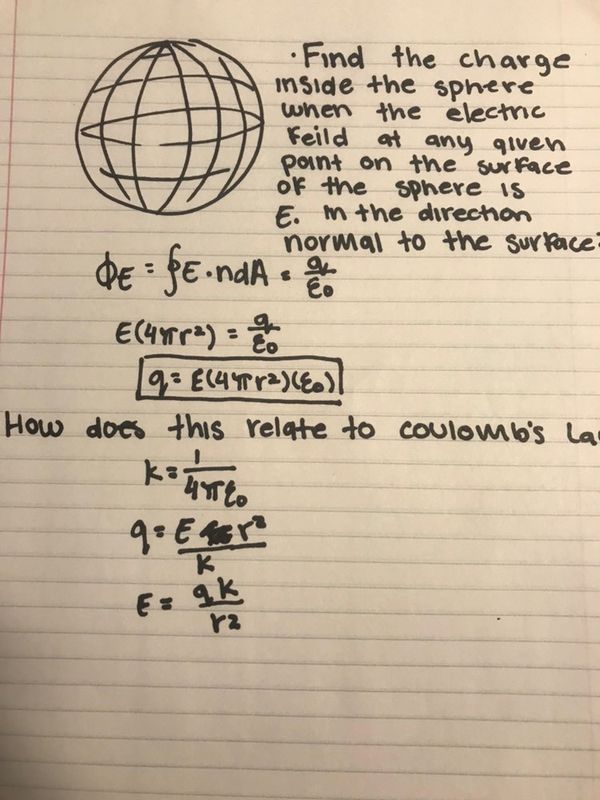 · Find the charge
inside the sphere
when the electric
Feild at any given
point on the surface
of the sphere is
E. in the direction
normal to the surface?
ΦE = ∮E·ndA = q/ε0
E(4πr²) = q/ε0
q = E(4πr²)(ε0)
How does this relate to coulomb's La
k = 1/4πε0
q = E r²/k
E = qk/r²